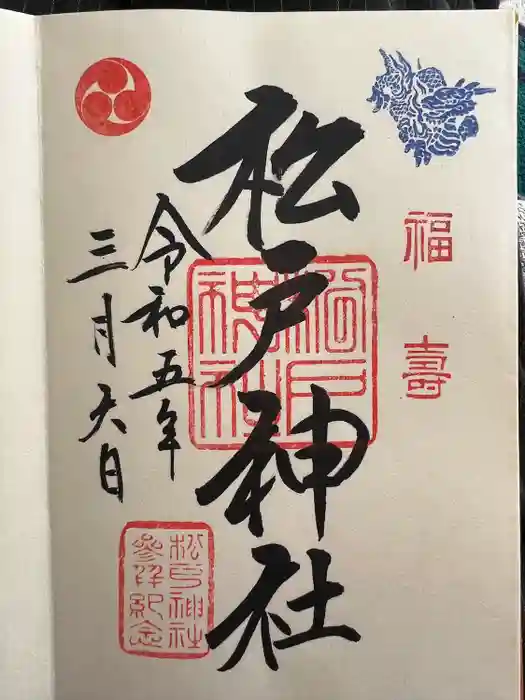 福壽
松戸神社
松戸神社
令和五年
三月六日
松戸神社
参拝紀念